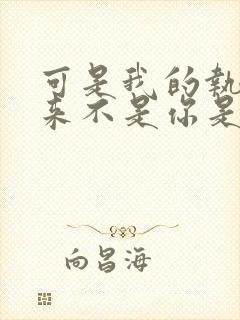 可是我的执
来不是你是
向昌海